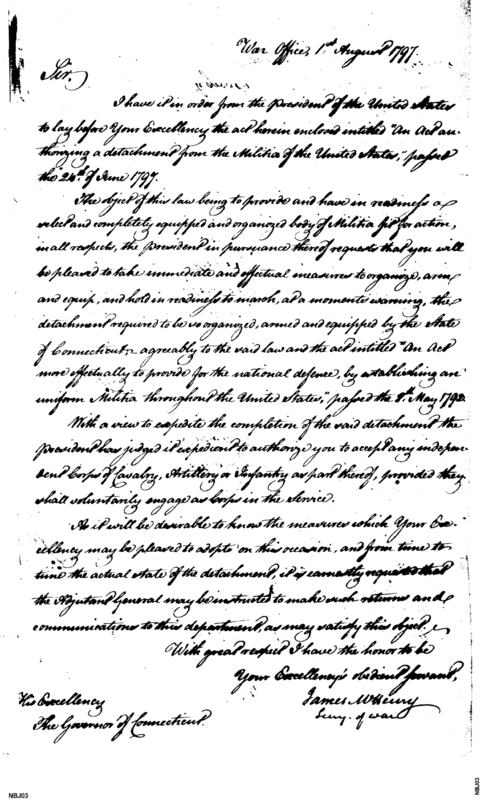 War Office, 1st August 1797.
Sir,
I have it in order from the President of the United States
to lay before Your Excellency the act herein enclosed intitled "An Act au-
thorizing a detachment from the Militia of the United States," passed
the 24th of June 1797.
The object of this law being to provide and have in readiness a
select and completely equipped and organized body of Militia fit for action,
in all respects, the President in pursuance thereof requests that you will
be pleased to take immediate and effectual measures to organize, arm
and equip, and hold in readiness to march, at a moments warning, the
detachment required to be so organized, armed and equipped by the State
of Connecticut agreeably to the said law and the act intitled "An Act
more effectually to provide for the national defence, by establishing an
uniform Militia throughout the United States," passed the 8th May 1792.
With a view to expedite the completion of the said detachment the
President has judged it expedient to authorize you to accept any indepen-
dent Corps of Cavalry, Artillery or Infantry as part thereof, provided they
shall voluntarily engage as Corps in the Service.
As it will be desirable to know the measures which Your Ex-
cellency may be pleased to adopt on this occasion, and from time to
time the actual state of the detachment, it is earnestly requested that
the Adjutant General may be instructed to make such returns and
communications to this department, as may satisfy this object.
With great respect I have the honor to be
Your Excellency's obedient servant,
James McHenry
Secry. of war
His Excellency
The Governor of Connecticut.
NBJ03
NBJ03